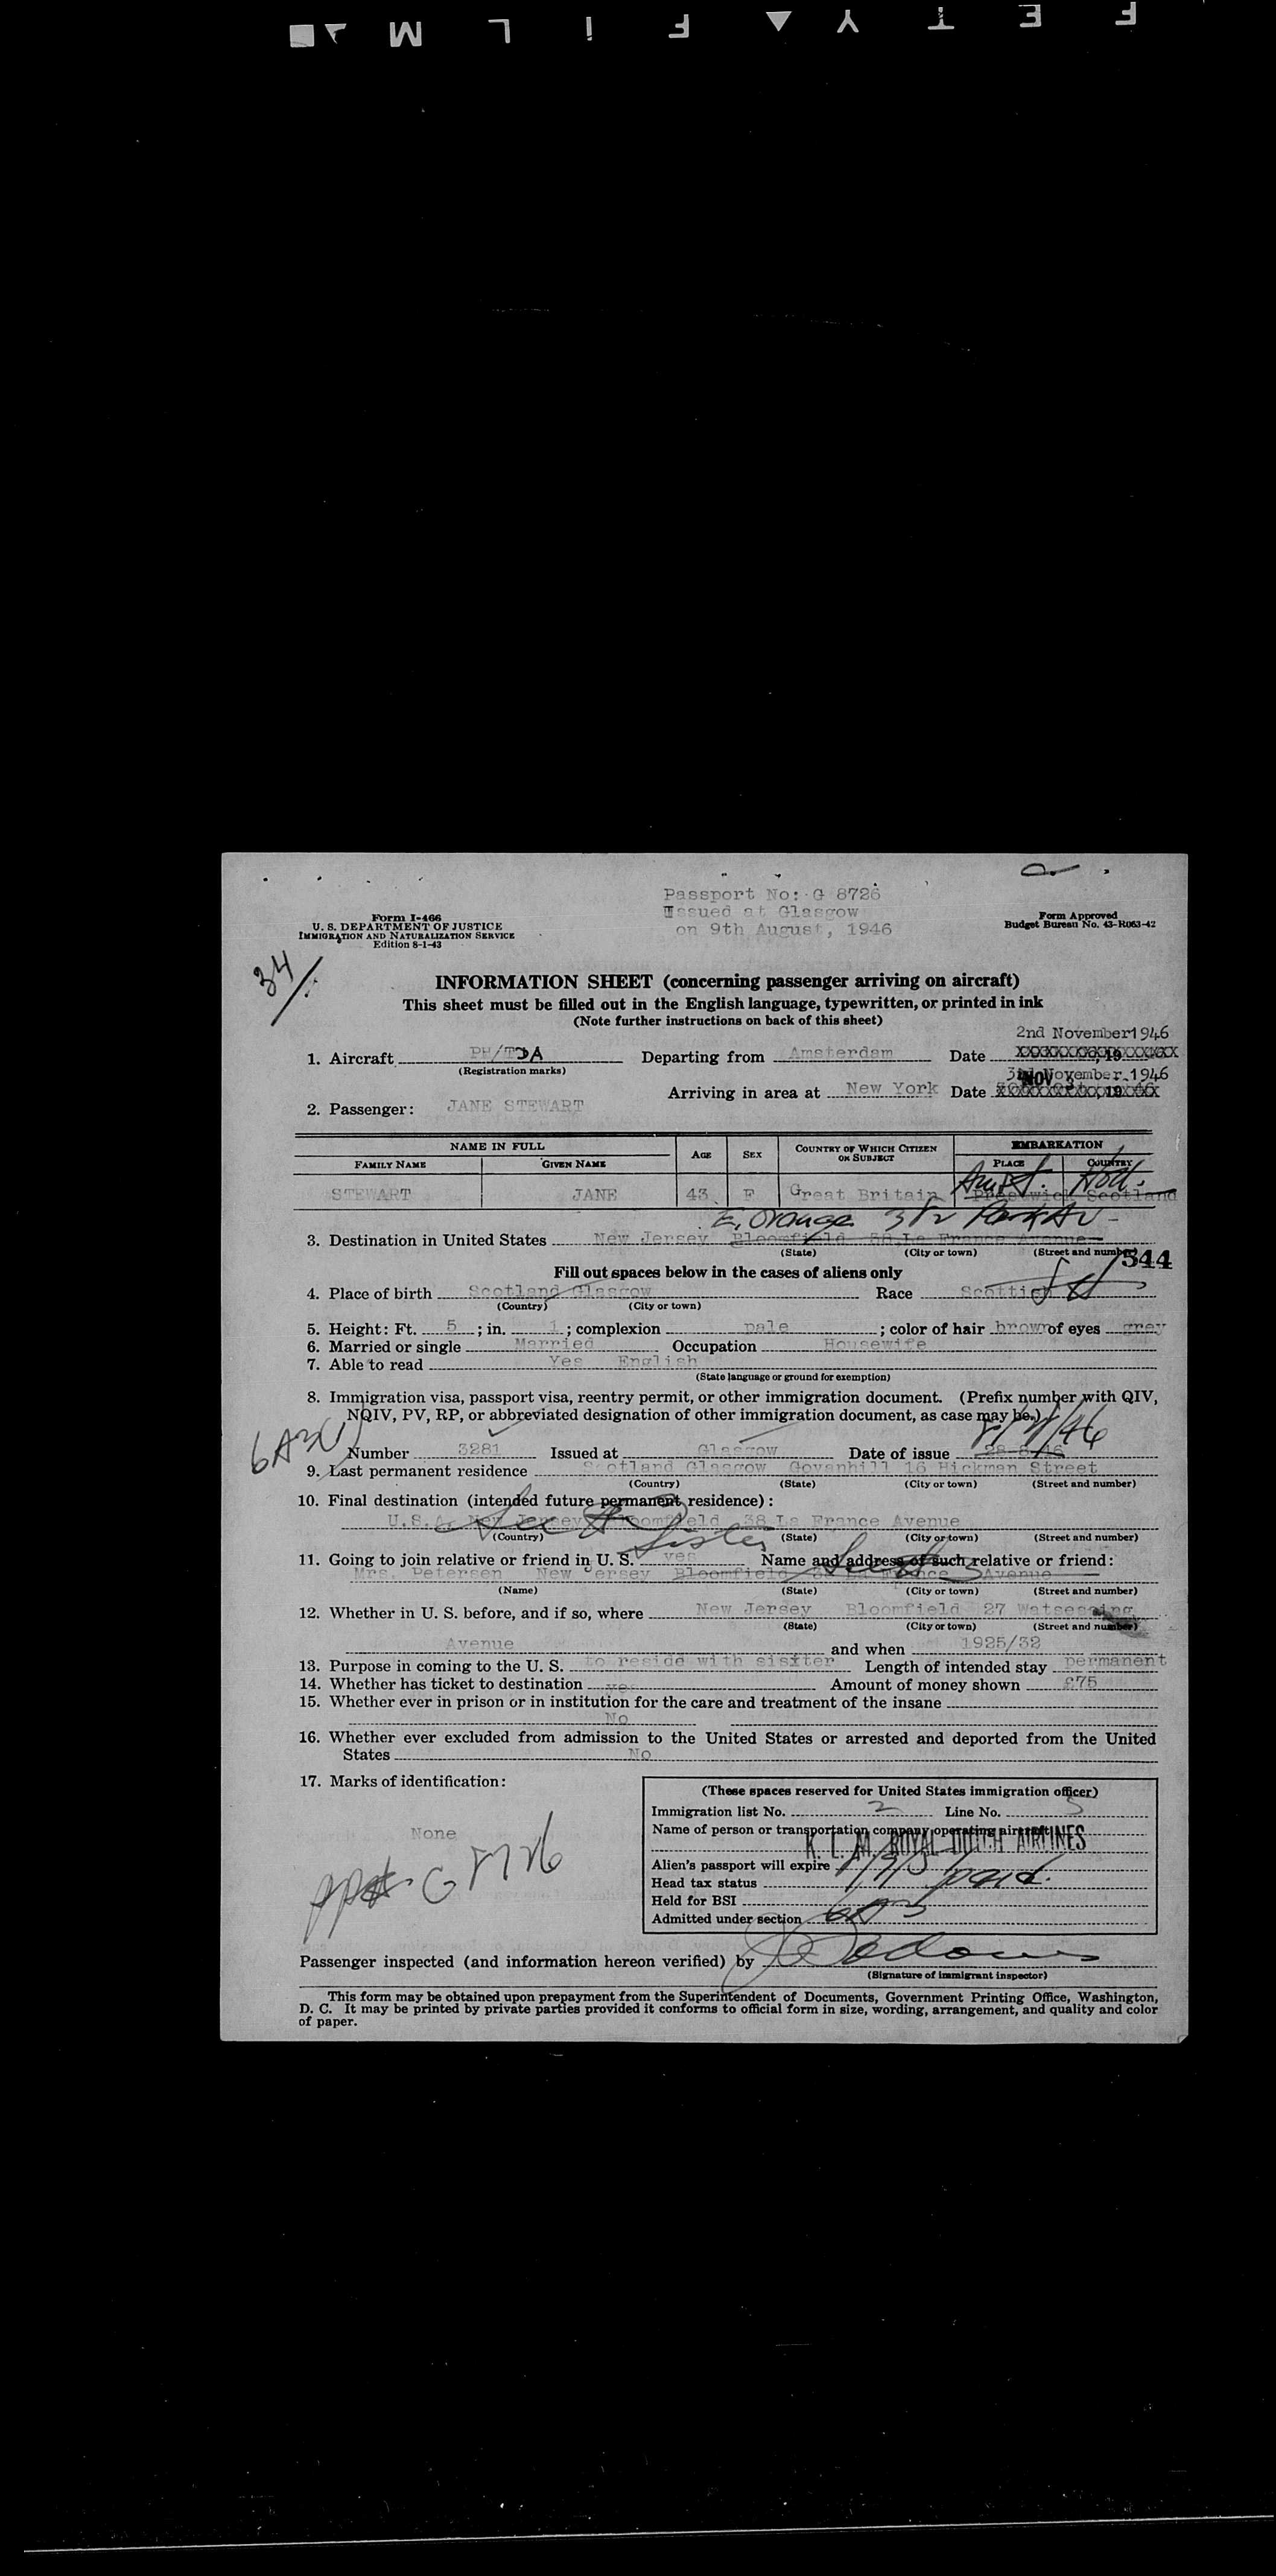 SAFETY FILM
Passport No: G 8726
Issued at Glasgow
on 9th August, 1946
Form I-466
U. S. DEPARTMENT OF JUSTICE
IMMIGRATION AND NATURALIZATION SERVICE
Edition 8-1-43
Form Approved
Budget Bureau No. 43-R063-42
34
INFORMATION SHEET (concerning passenger arriving on aircraft)
This sheet must be filled out in the English language, typewritten, or printed in ink
(Note further instructions on back of this sheet)
2nd November 1946
1. Aircraft PH/TDA Departing from Amsterdam Date , 19
(Registration marks)
3rd November 1946
Arriving in area at New York Date NOV 3 , 19
2. Passenger: JANE STEWART
NAME IN FULL AGE SEX COUNTRY OF WHICH CITIZEN OR SUBJECT EMBARKATION
FAMILY NAME GIVEN NAME PLACE COUNTRY
Amst. Holl.
STEWART JANE 43 F Great Britain Prestwick Scotland
E. Orange 382 Park Av
3. Destination in United States New Jersey Bloomfield 38 La France Avenue
(State) (City or town) (Street and number)
544
Fill out spaces below in the cases of aliens only
4. Place of birth Scotland Glasgow Race Scottish
(Country) (City or town)
5. Height: Ft. 5 ; in. 1 ; complexion pale ; color of hair brown of eyes grey
6. Married or single Married Occupation Housewife
7. Able to read Yes English
(State language or ground for exemption)
8. Immigration visa, passport visa, reentry permit, or other immigration document. (Prefix number with QIV,
NQIV, PV, RP, or abbreviated designation of other immigration document, as case may be.)
6A3
Number 3281 Issued at Glasgow Date of issue 28-8-46
9. Last permanent residence Scotland Glasgow Govanhill 16 Hickman Street
(Country) (State) (City or town) (Street and number)
10. Final destination (intended future permanent residence):
U.S.A. New Jersey Bloomfield 38 La France Avenue
(Country) (State) (City or town) (Street and number)
Sister
11. Going to join relative or friend in U. S. yes Name and address of such relative or friend:
Mrs. Petersen New Jersey Bloomfield 38 La France Avenue
(Name) (State) (City or town) (Street and number)
12. Whether in U. S. before, and if so, where New Jersey Bloomfield 27 Watsessing
(State) (City or town) (Street and number)
Avenue and when 1925/32
13. Purpose in coming to the U. S. to reside with sisxter Length of intended stay permanent
14. Whether has ticket to destination yes Amount of money shown £75
15. Whether ever in prison or in institution for the care and treatment of the insane
No
16. Whether ever excluded from admission to the United States or arrested and deported from the United
States No
17. Marks of identification:
None
ppt. G 8726
(These spaces reserved for United States immigration officer)
Immigration list No. 2 Line No. 5
Name of person or transportation company operating aircraft
K. L. M. ROYAL DUTCH AIRLINES
Alien's passport will expire
Head tax status paid.
Held for BSI
Admitted under section 6A3
Passenger inspected (and information hereon verified) by
(Signature of immigrant inspector)
This form may be obtained upon prepayment from the Superintendent of Documents, Government Printing Office, Washington,
D. C. It may be printed by private parties provided it conforms to official form in size, wording, arrangement, and quality and color
of paper.